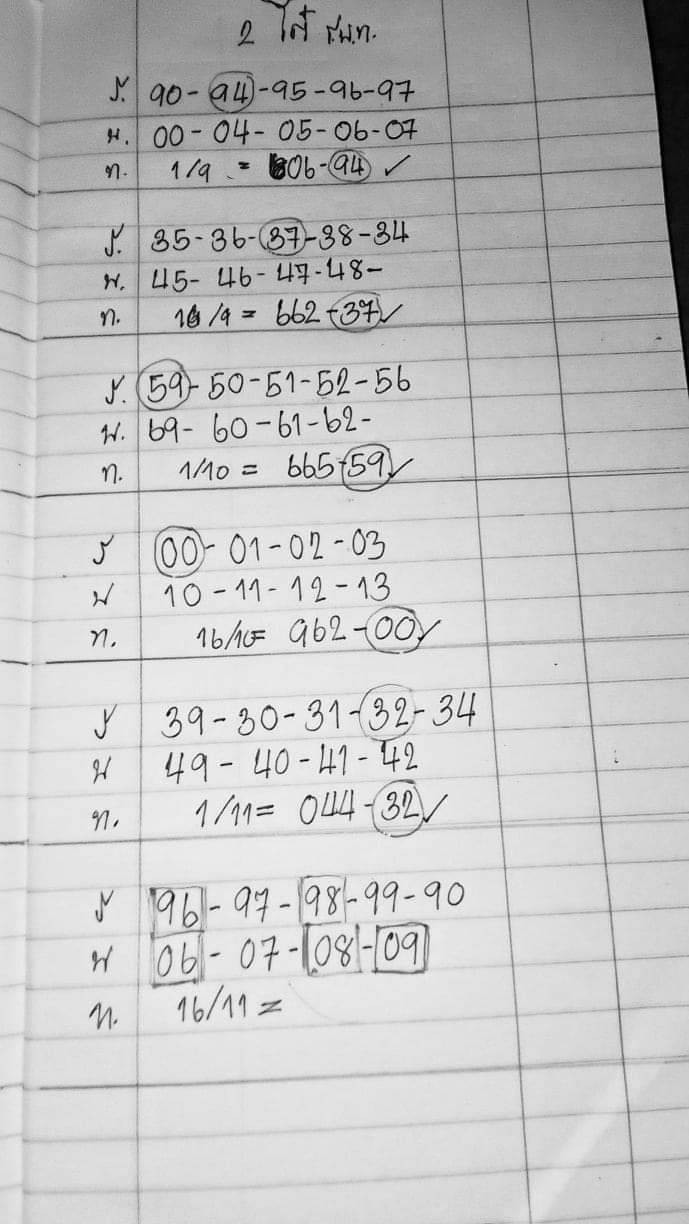 2 ไส้ ร.พ.ท.
ร. 90-94-95-96-97
พ. 00-04-05-06-07
ท. 1/9 = 606-94 ✓
ร. 35-36-37-38-34
พ. 45-46-47-48-
ท. 16/9 = 662-37 ✓
ร. 59-50-51-52-56
พ. 69-60-61-62-
ท. 1/10 = 665-59 ✓
ร 00-01-02-03
พ 10-11-12-13
ท. 16/10= 962-00 ✓
ร 39-30-31-32-34
พ 49-40-41-42
ท. 1/11= 044-32 ✓
ร 96-97-98-99-90
พ 06-07-08-09
ท. 16/11 =